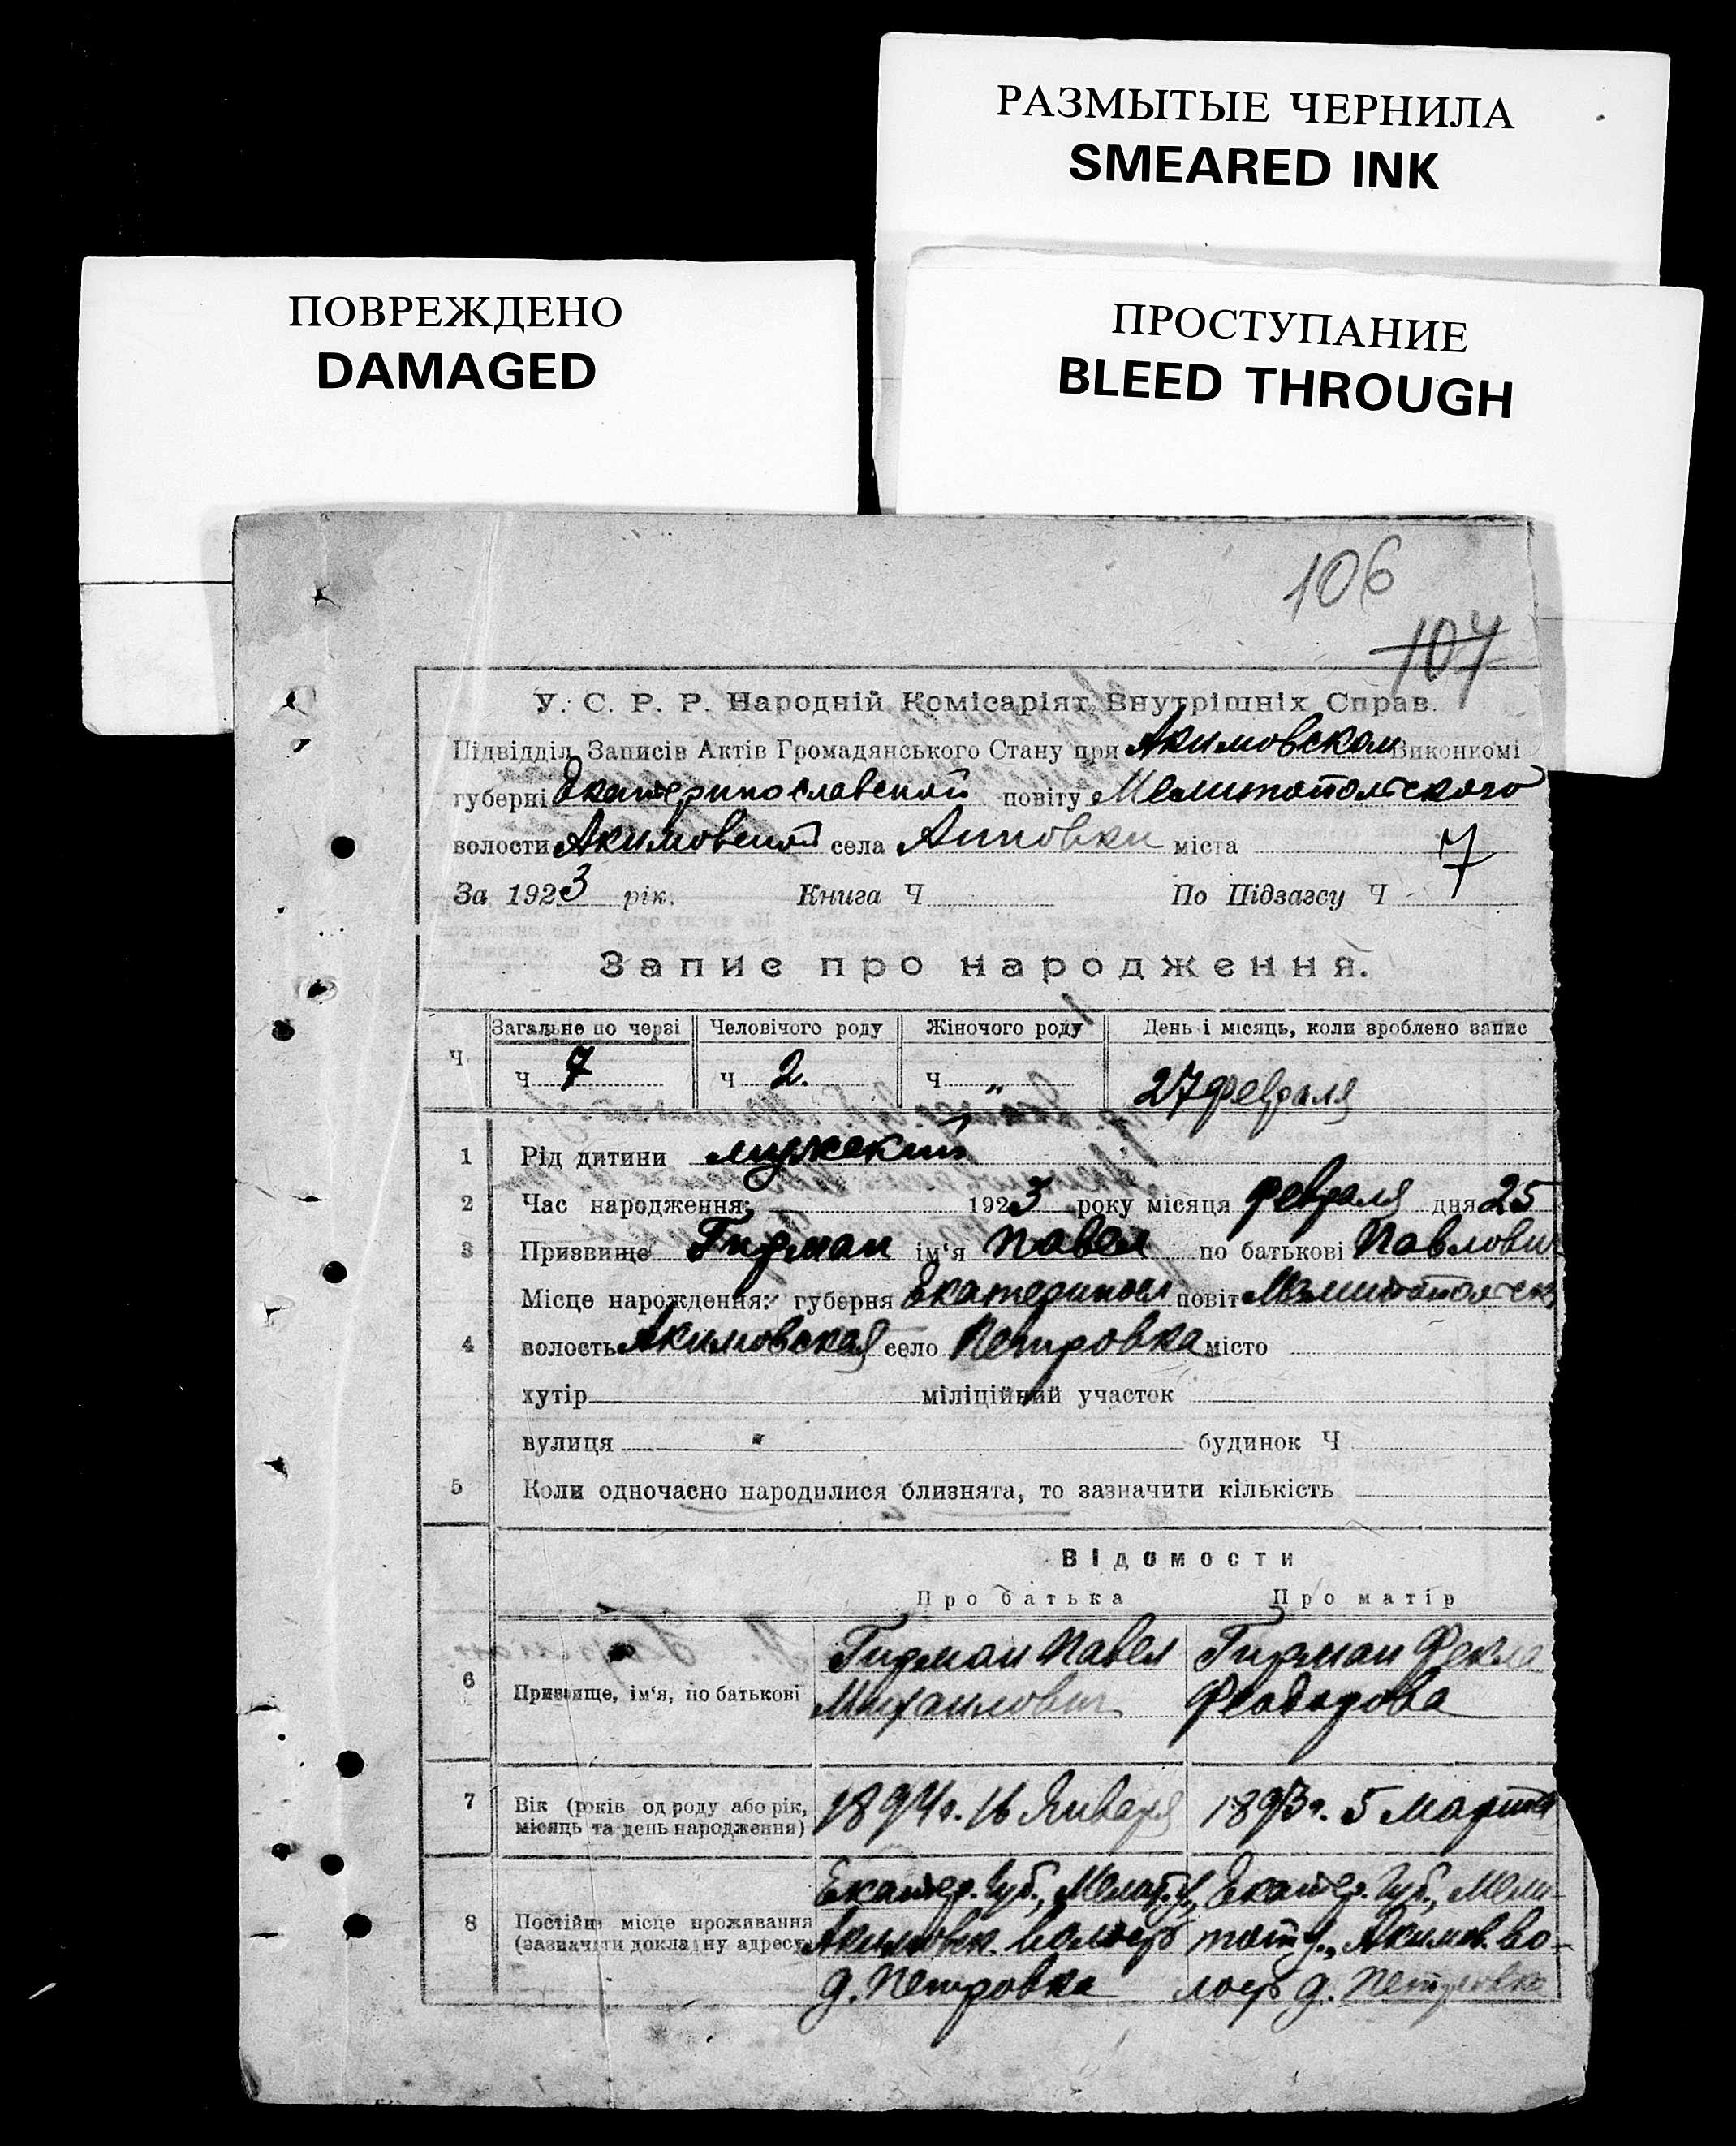 РАЗМЫТЫЕ ЧЕРНИЛА
SMEARED INK
ПОВРЕЖДЕНО
DAMAGED
ПРОСТУПАНИЕ
BLEED THROUGH
106
107
У. С. Р. Р. Народній Комісаріят Внутрішніх Справ.
Підвідділ Записів Актів Громадянського Стану при Акимовском Виконкомі
губерні Екатеринославской повіту Мелитопольского
волости Акимовской села Анновки міста
За 1923 рік. Книга Ч По Підзагсу Ч 7
Запис про народження.
Загальне по черзі Человічого роду Жіночого роду День і місяць, коли зроблено запис
Ч Ч 7 Ч 2. Ч " 27 февраля
1 Рід дитини мужский
2 Час народження: 1923 року місяця февраля дня 25
3 Призвище Гирман ім'я Павел по батькові Павлови
Місце нарождення: губерня Екатериносл повіт Мелитопольск
4 волость Акимовская село Петровка місто
хутір міліційний участок
вулиця будинок Ч
5 Коли одночасно народилися близнята, то зазначити кількість
Відомости
Про батька Про матір
Гирман Павел Гирман Фекла
6 Призвище, ім'я, по батькові Михаилович Феодорова
7 Вік (років од роду або рік, 1894 г. 16 Января 1893 г. 5 Марта
місяць та день народження)
Екатер. Губ., Мелит. у., Екатер. Губ., Мели-
8 Постійне місце проживання Акимовск. волость топ у., Акимов. во-
(зазначити докладну адресу)
д. Петровка лость д. Петровка